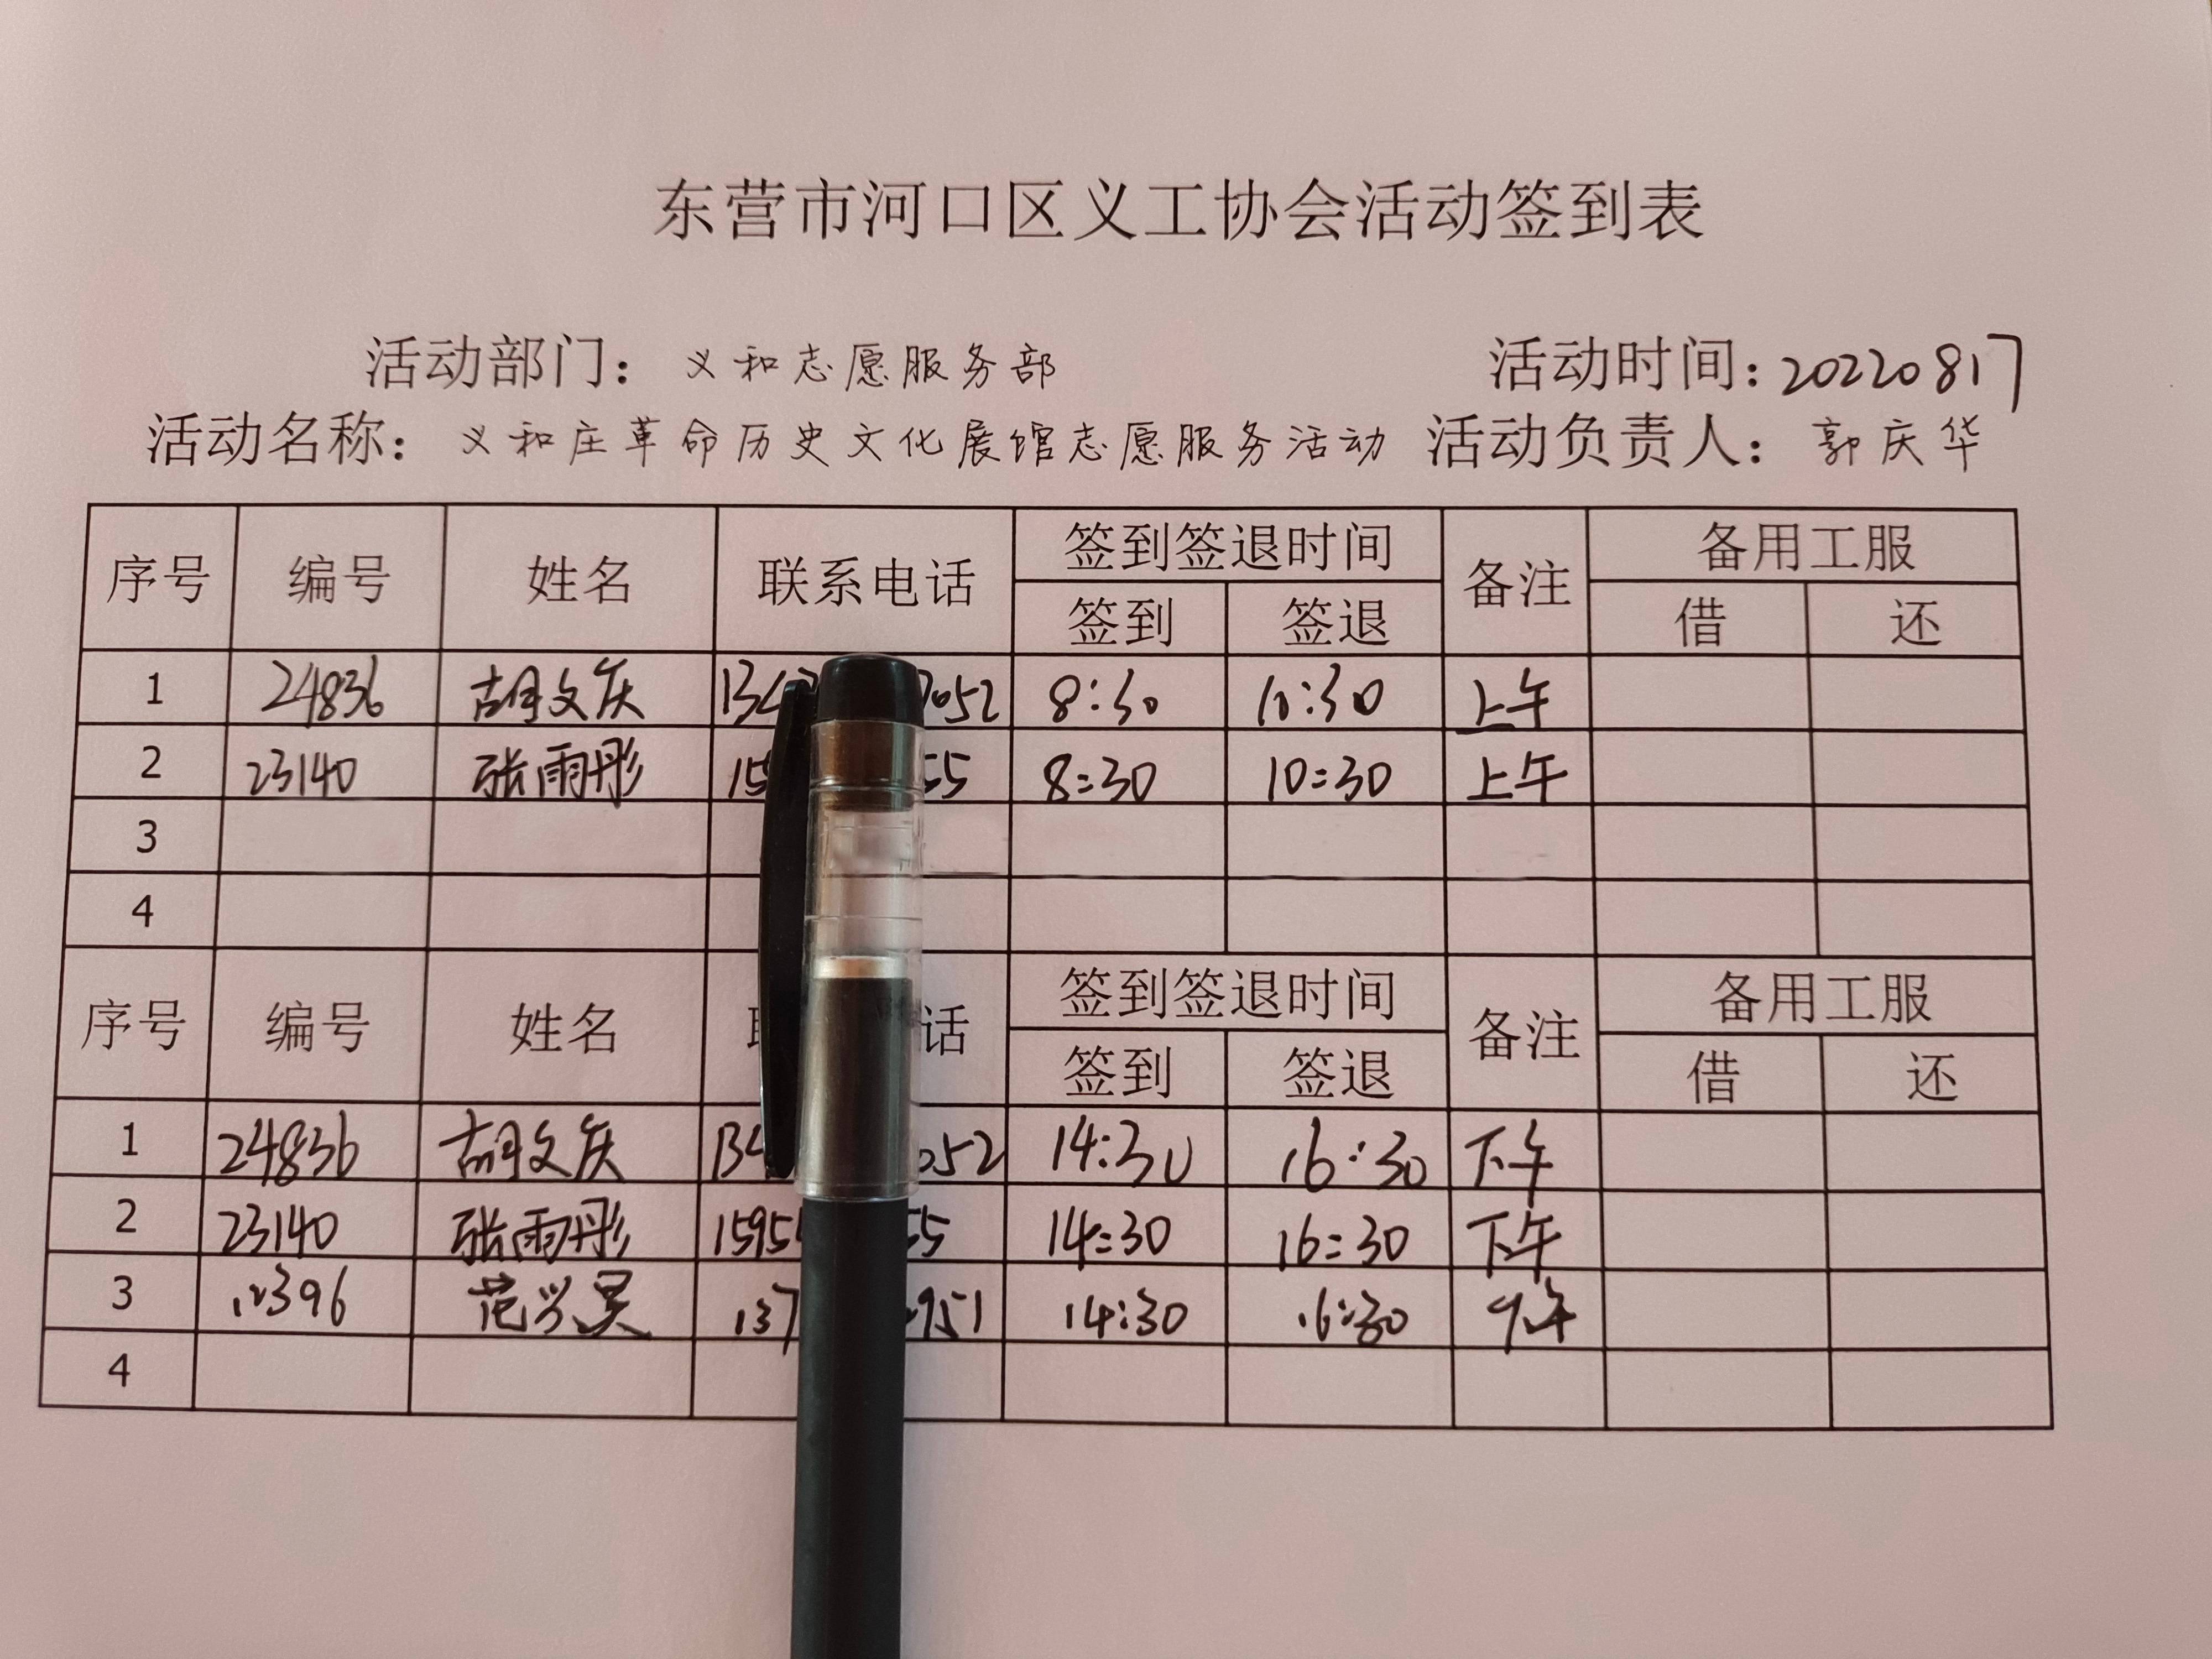 东营市河口区义工协会活动签到表
活动部门：义和志愿服务部 活动时间：20220817
活动名称：义和庄革命历史文化展馆志愿服务活动 活动负责人：郭庆华
序号 编号 姓名 联系电话 签到签退时间 备注 备用工服
签到 签退 借 还
1 24836 胡文庆 134 7052 8:30 10:30 上午
2 23140 张雨彤 15 55 8:30 10:30 上午
3
4
序号 编号 姓名 话 签到签退时间 备注 备用工服
签到 签退 借 还
1 24836 胡文庆 134 052 14:30 16:30 下午
2 23140 张雨彤 1595 55 14:30 16:30 下午
3 12396 范兴昊 137 951 14:30 16:30 下午
4